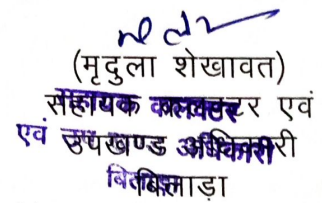 (मृदुला शेखावत)
सहायक कलक्टर एवं
एवं उपखण्ड अधिकारी
बिलाड़ा